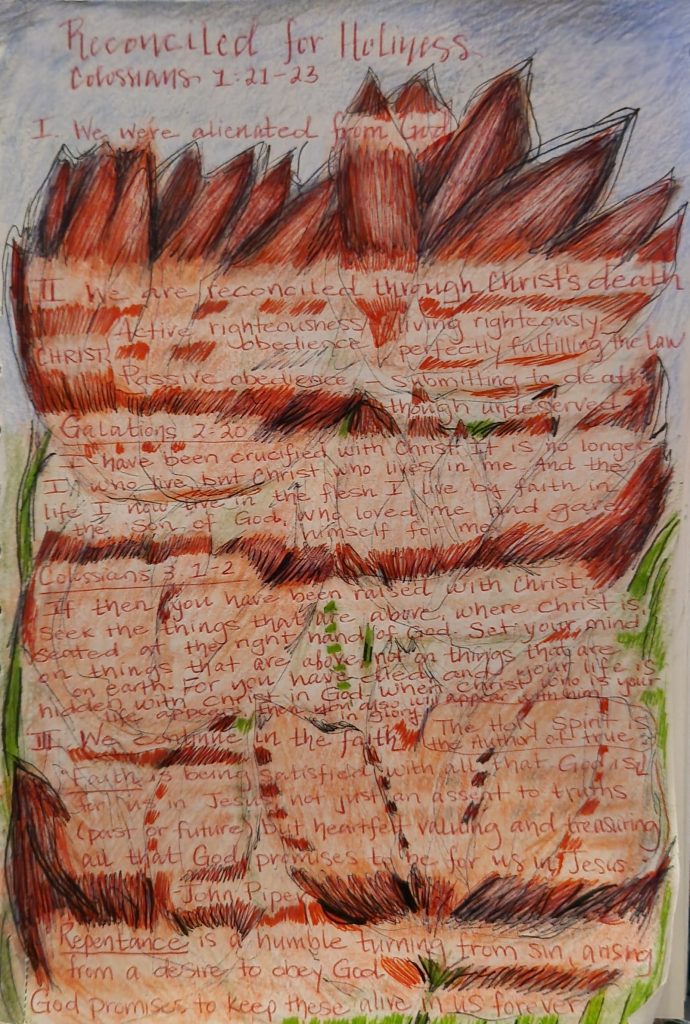 Reconciled for Holiness
Colossians 1:21-23
I. We were alienated from God
II We are reconciled through Christ's death
Active righteousness/ living righteously-
CHRIST obedience perfectly fulfilling the law
Passive obedience - submitting to death
though undeserved
Galations 2:20
I have been crucified with Christ. It is no longer
I who live but Christ who lives in me. And the
life I now live in the flesh I live by faith in
the Son of God, who loved me and gave
himself for me
Colossians 3:1-2
If then you have been raised with Christ,
seek the things that are above, where Christ is,
seated at the right hand of God. Set your mind
on things that are above not on things that are
on earth. For you have died and your life is
hidden with Christ in God. When Christ who is your
life appears then you also will appear with him
in glory
III We continue in the faith
The Holy Spirit is
the Author of true
"Faith is being satisfied with all that God is
for us in Jesus not just an assent to truths
(past or future) but heartfelt valuing and treasuring
all that God promises to be for us in Jesus
-John Piper
Repentance is a humble turning from sin, arising
from a desire to obey God
God promises to keep these alive in us forever